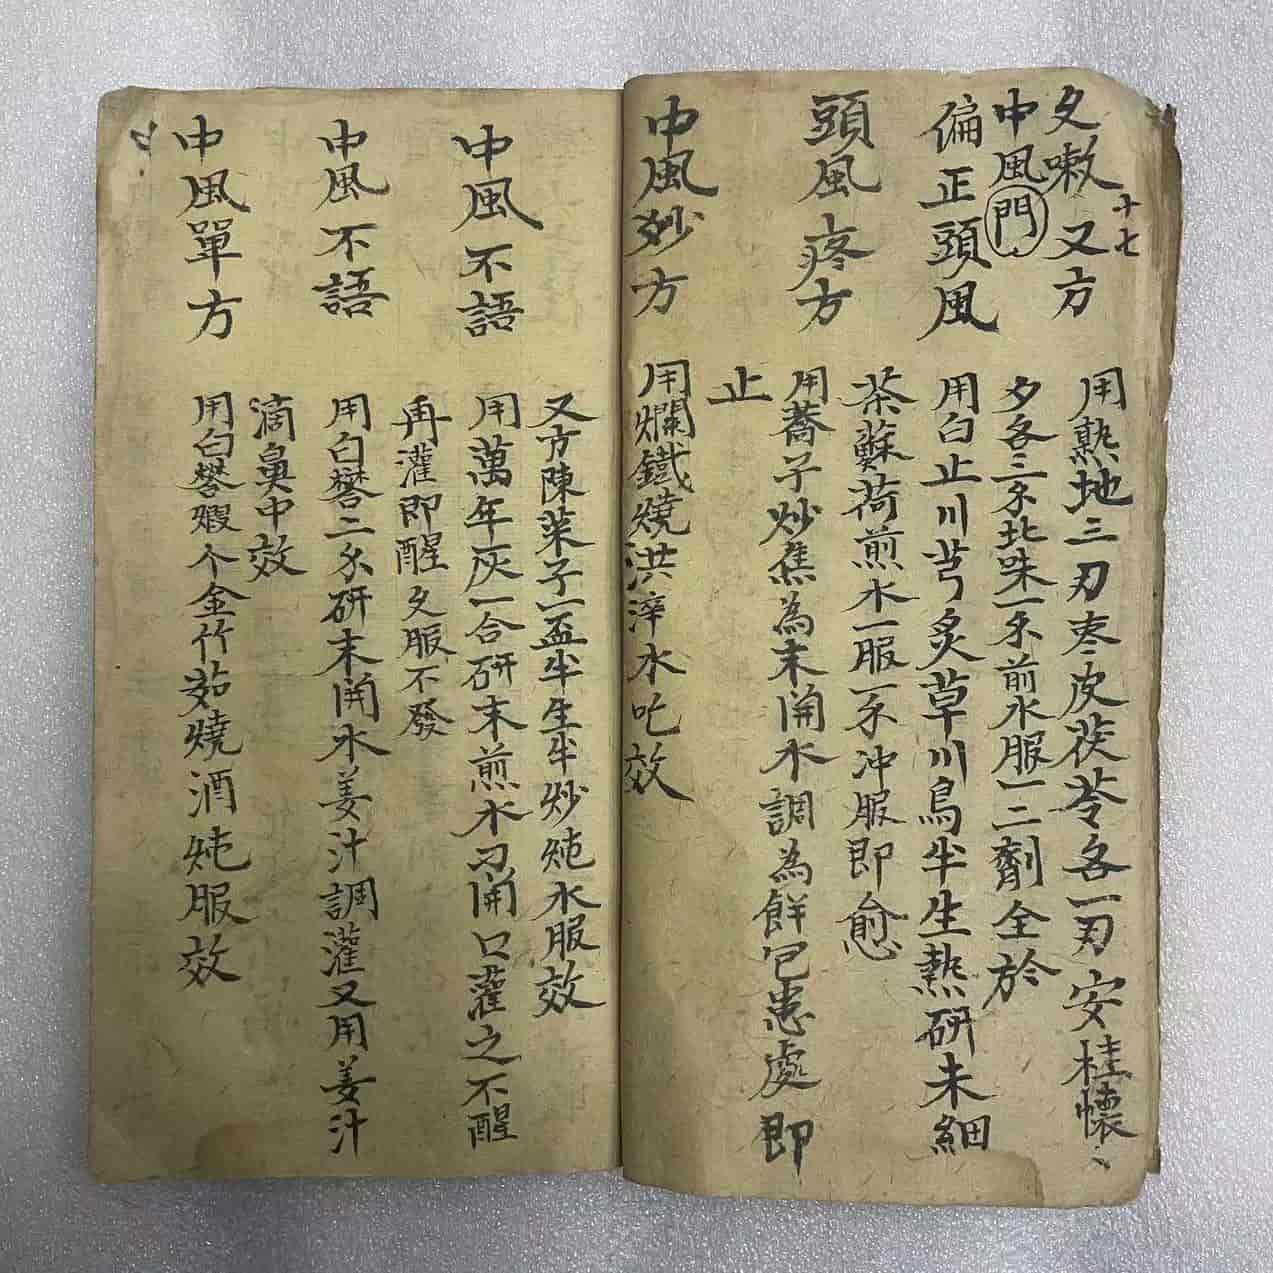 久嗽又方 用熟地三刃枣皮茯苓各一刃安桂懷〻
十七
夕各三𠂆北味一𠂆前水服一二劑全於
中風門
偏正頭風 用白止川芎炙草川烏半生熱研末細
茶蘇荷煎水一服一𠂆冲服即愈
頭風疼方 用蕎子炒焦為末開水調為餅包患處即
止
中風妙方 用爛鐵燒洪淬水吃效
又方陳菜子一盃半生半炒炖水服效
中風不語 用萬年灰一合研末煎水刁開口灌之不醒
再灌即醒久服不發
中風不語 用白礬二𠂆研末開水姜汁調灌又用姜汁
滴鼻中效
中風單方 用白礬 个金竹茹燒酒炖服效